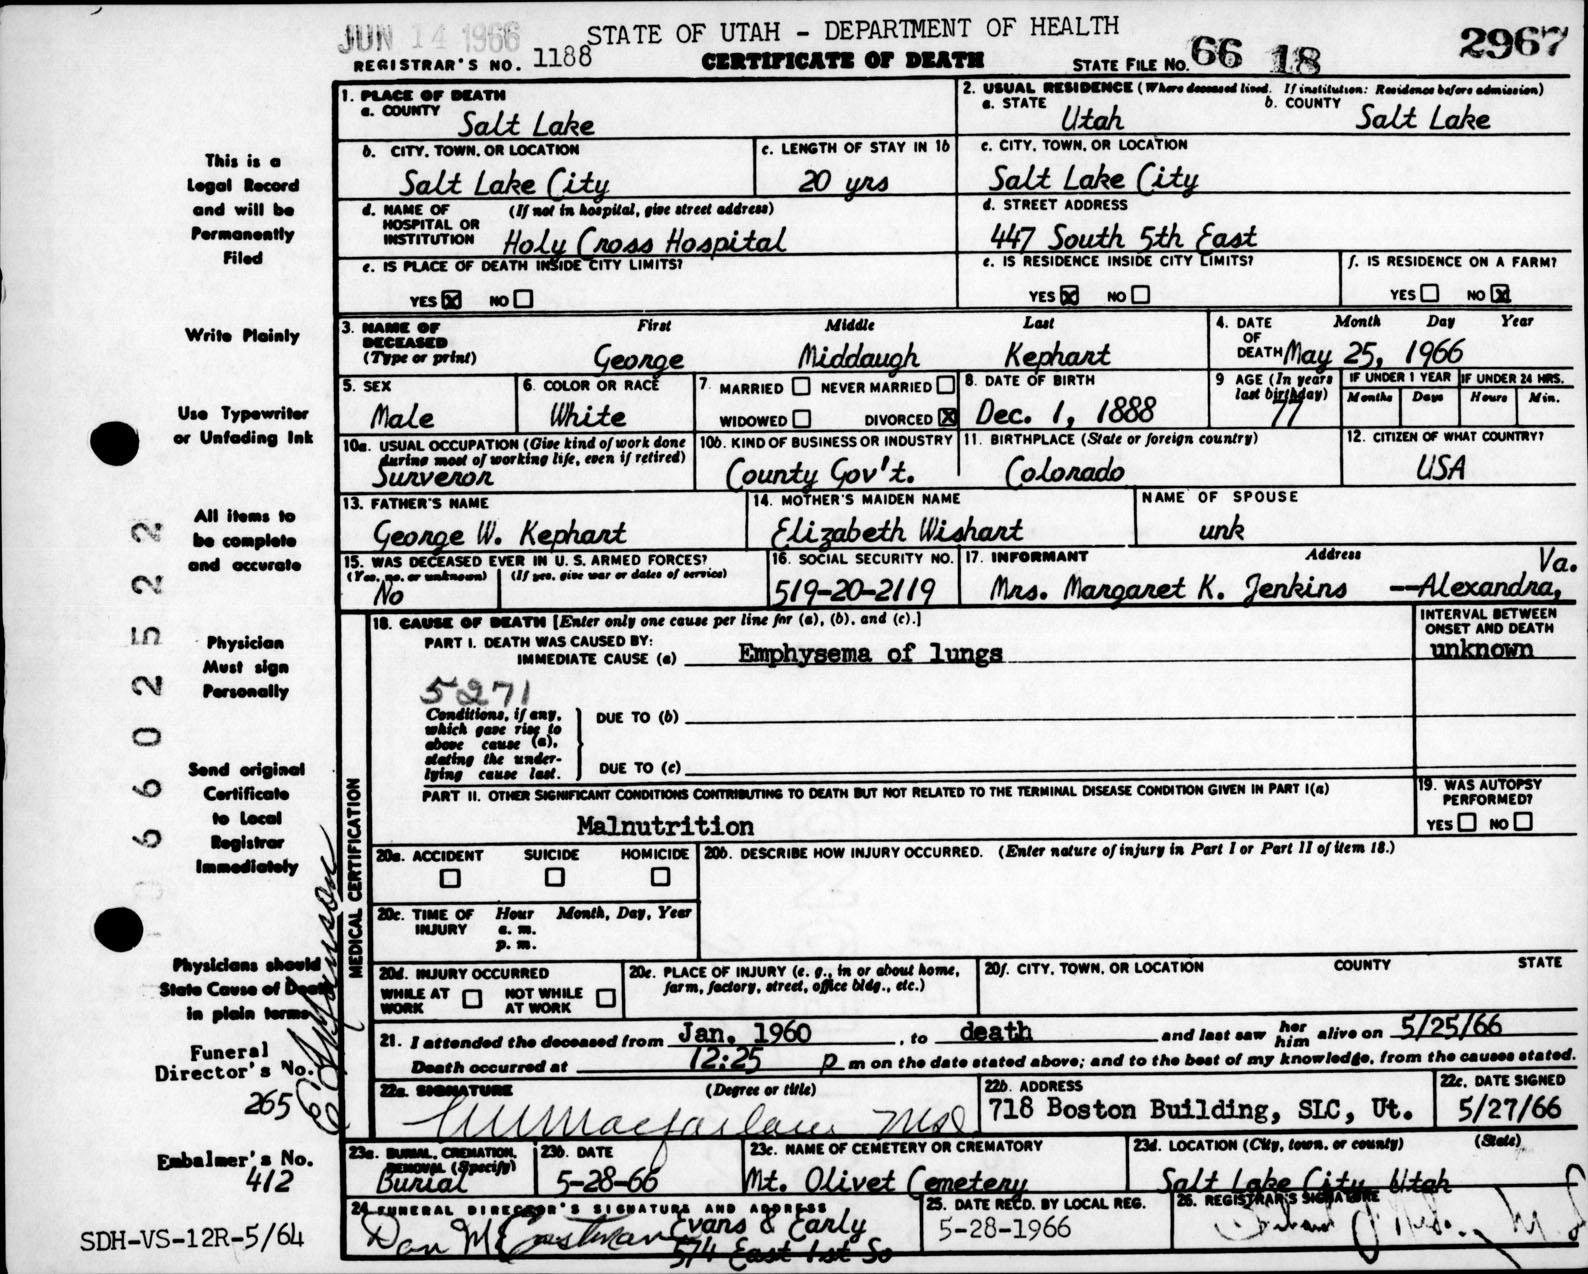 JUN 14 1966
STATE OF UTAH - DEPARTMENT OF HEALTH
REGISTRAR'S NO. 1188
CERTIFICATE OF DEATH
STATE FILE NO. 66 18 2967
This is a
Legal Record
and will be
Permanently
Filed
Write Plainly
Use Typewriter
or Unfading Ink
All items to
be complete
and accurate
Physician
Must sign
Personally
Send original
Certificate
to Local
Registrar
Immediately
Physicians should
State Cause of Death
in plain terms
Funeral
Director's No.
265
Embalmer's No.
412
SDH-VS-12R-5/64
066025222
1. PLACE OF DEATH
a. COUNTY
Salt Lake
2. USUAL RESIDENCE (Where deceased lived. If institution: Residence before admission)
a. STATE
Utah
b. COUNTY
Salt Lake
b. CITY, TOWN, OR LOCATION
Salt Lake City
c. LENGTH OF STAY IN 1b
20 yrs
c. CITY, TOWN, OR LOCATION
Salt Lake City
d. NAME OF HOSPITAL OR INSTITUTION
(If not in hospital, give street address)
Holy Cross Hospital
d. STREET ADDRESS
447 South 5th East
e. IS PLACE OF DEATH INSIDE CITY LIMITS?
YES X NO
e. IS RESIDENCE INSIDE CITY LIMITS?
YES X NO
f. IS RESIDENCE ON A FARM?
YES NO X
3. NAME OF DECEASED
(Type or print)
First Middle Last
George Middaugh Kephart
4. DATE OF DEATH
Month Day Year
May 25, 1966
5. SEX
Male
6. COLOR OR RACE
White
7. MARRIED NEVER MARRIED
WIDOWED DIVORCED X
8. DATE OF BIRTH
Dec. 1, 1888
9 AGE (In years last birthday)
77
IF UNDER 1 YEAR
Months Days
IF UNDER 24 HRS.
Hours Min.
10a. USUAL OCCUPATION (Give kind of work done during most of working life, even if retired)
Surveror
10b. KIND OF BUSINESS OR INDUSTRY
County Gov't.
11. BIRTHPLACE (State or foreign country)
Colorado
12. CITIZEN OF WHAT COUNTRY?
USA
13. FATHER'S NAME
George W. Kephart
14. MOTHER'S MAIDEN NAME
Elizabeth Wishart
NAME OF SPOUSE
unk
15. WAS DECEASED EVER IN U. S. ARMED FORCES?
(Yes, no, or unknown) (If yes, give war or dates of service)
No
16. SOCIAL SECURITY NO.
519-20-2119
17. INFORMANT Address
Mrs. Margaret K. Jenkins --Alexandra, Va.
MEDICAL CERTIFICATION
18. CAUSE OF DEATH [Enter only one cause per line for (a), (b), and (c).]
PART I. DEATH WAS CAUSED BY:
IMMEDIATE CAUSE (a) Emphysema of lungs
INTERVAL BETWEEN ONSET AND DEATH
unknown
5271
Conditions, if any, which gave rise to above cause (a), stating the underlying cause last.
DUE TO (b)
DUE TO (c)
PART II. OTHER SIGNIFICANT CONDITIONS CONTRIBUTING TO DEATH BUT NOT RELATED TO THE TERMINAL DISEASE CONDITION GIVEN IN PART I(a)
Malnutrition
19. WAS AUTOPSY PERFORMED?
YES NO
20a. ACCIDENT SUICIDE HOMICIDE
20b. DESCRIBE HOW INJURY OCCURRED. (Enter nature of injury in Part I or Part II of item 18.)
20c. TIME OF INJURY
Hour Month, Day, Year
a. m.
p. m.
20d. INJURY OCCURRED
WHILE AT WORK NOT WHILE AT WORK
20e. PLACE OF INJURY (e. g., in or about home, farm, factory, street, office bldg., etc.)
20f. CITY, TOWN, OR LOCATION COUNTY STATE
21. I attended the deceased from Jan. 1960, to death and last saw her him alive on 5/25/66
Death occurred at 12:25 p m on the date stated above; and to the best of my knowledge, from the causes stated.
22a. SIGNATURE (Degree or title)
Macfarlane MD
22b. ADDRESS
718 Boston Building, SLC, Ut.
22c. DATE SIGNED
5/27/66
23a. BURIAL, CREMATION, REMOVAL (Specify)
Burial
23b. DATE
5-28-66
23c. NAME OF CEMETERY OR CREMATORY
Mt. Olivet Cemetery
23d. LOCATION (City, town, or county) (State)
Salt Lake City, Utah
24 FUNERAL DIRECTOR'S SIGNATURE AND ADDRESS
Don M Eastman
Evans & Early
574 East 1st So
25. DATE RECD. BY LOCAL REG.
5-28-1966
26. REGISTRAR'S SIGNATURE